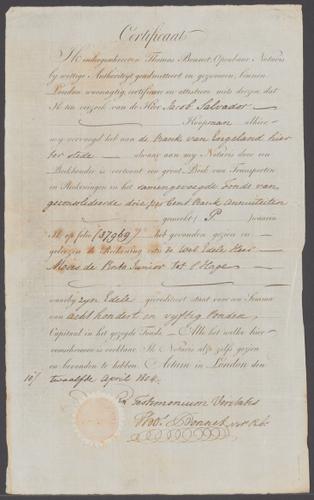 Certificaat
Ik ondergeschreeven Thomas Bonnet, Openbaar Notaris
by wettige Authoriteyt geadmitteert en gezwooren, binnen
London woonagtig, certificeere en attesteere mits dezen, dat
Ik ten verzoek van de Heer Jacob Salvador
Koopman alhier
my vervoegd heb aan de Bank van Engeland hier
ter stede alwaar aan my Notaris door een
Boekhouder is vertoont een groot Boek van Transporten
en Rekeningen in het samengevoegde Fonds van
geconsolideerde drie per Cent Bank Annuiteiten
gemerkt P
Ik op folio (37969) heb gevonden gezien en
geleezen de Rekening van de Wel Edele Heer
Moses de Pinto Junior tot S'Hage
waarby zyn Edele gecrediteert staat voor een Somma
van acht hondert en vyftig Ponden
Capitaal in het gezegde Fonds Alle het welke hier
vooren verklaar Ik Notaris alzo zelfs gezien
en bevonden te hebben. Actum in London den
twaalfde April 1804
Testimonium Veritatis
Thos. Bonnet